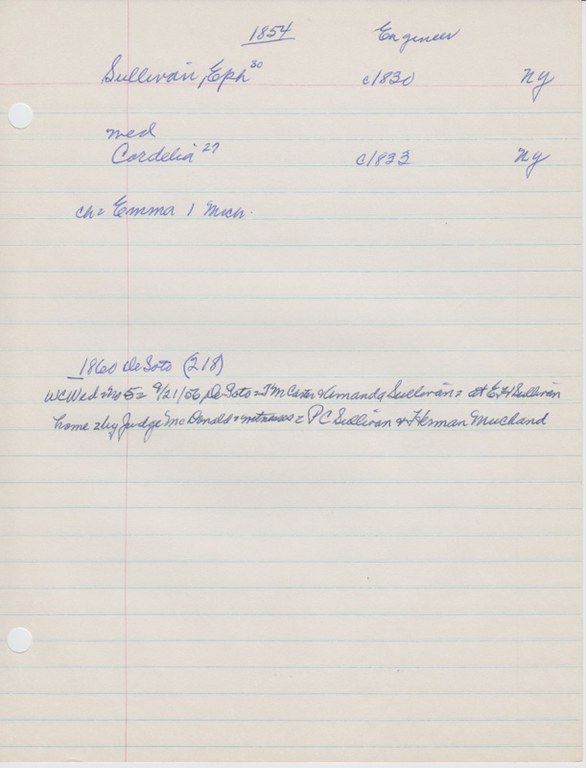 1854 Engineer
Sullivan, Eph 30 c1830 Ny
wed
Cordelia 27 c1833 Ny
ch = Emma 1 Mich.
1860 DeSoto (218)
WCWed = 9/21/56 DeSoto = & Sullivan = at Eph Sullivan
home = by Judge McDonald = witnesses = P C Sullivan & Herman